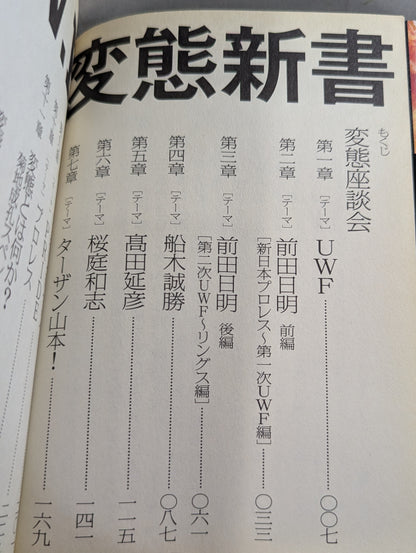 変態新書
もくじ
変態座談会
第一章 [テーマ] UWF 〇〇七
第二章 [テーマ] 前田日明 前編
[新日本プロレス〜第一次UWF編] 〇三三
第三章 [テーマ] 前田日明 後編
[第二次UWF〜リングス編] 〇六一
第四章 [テーマ] 船木誠勝 〇八七
第五章 [テーマ] 髙田延彦 一一五
第六章 [テーマ] 桜庭和志 一四一
第七章 [テーマ] ターザン山本! 一六九
プロレス
変態とは何か?